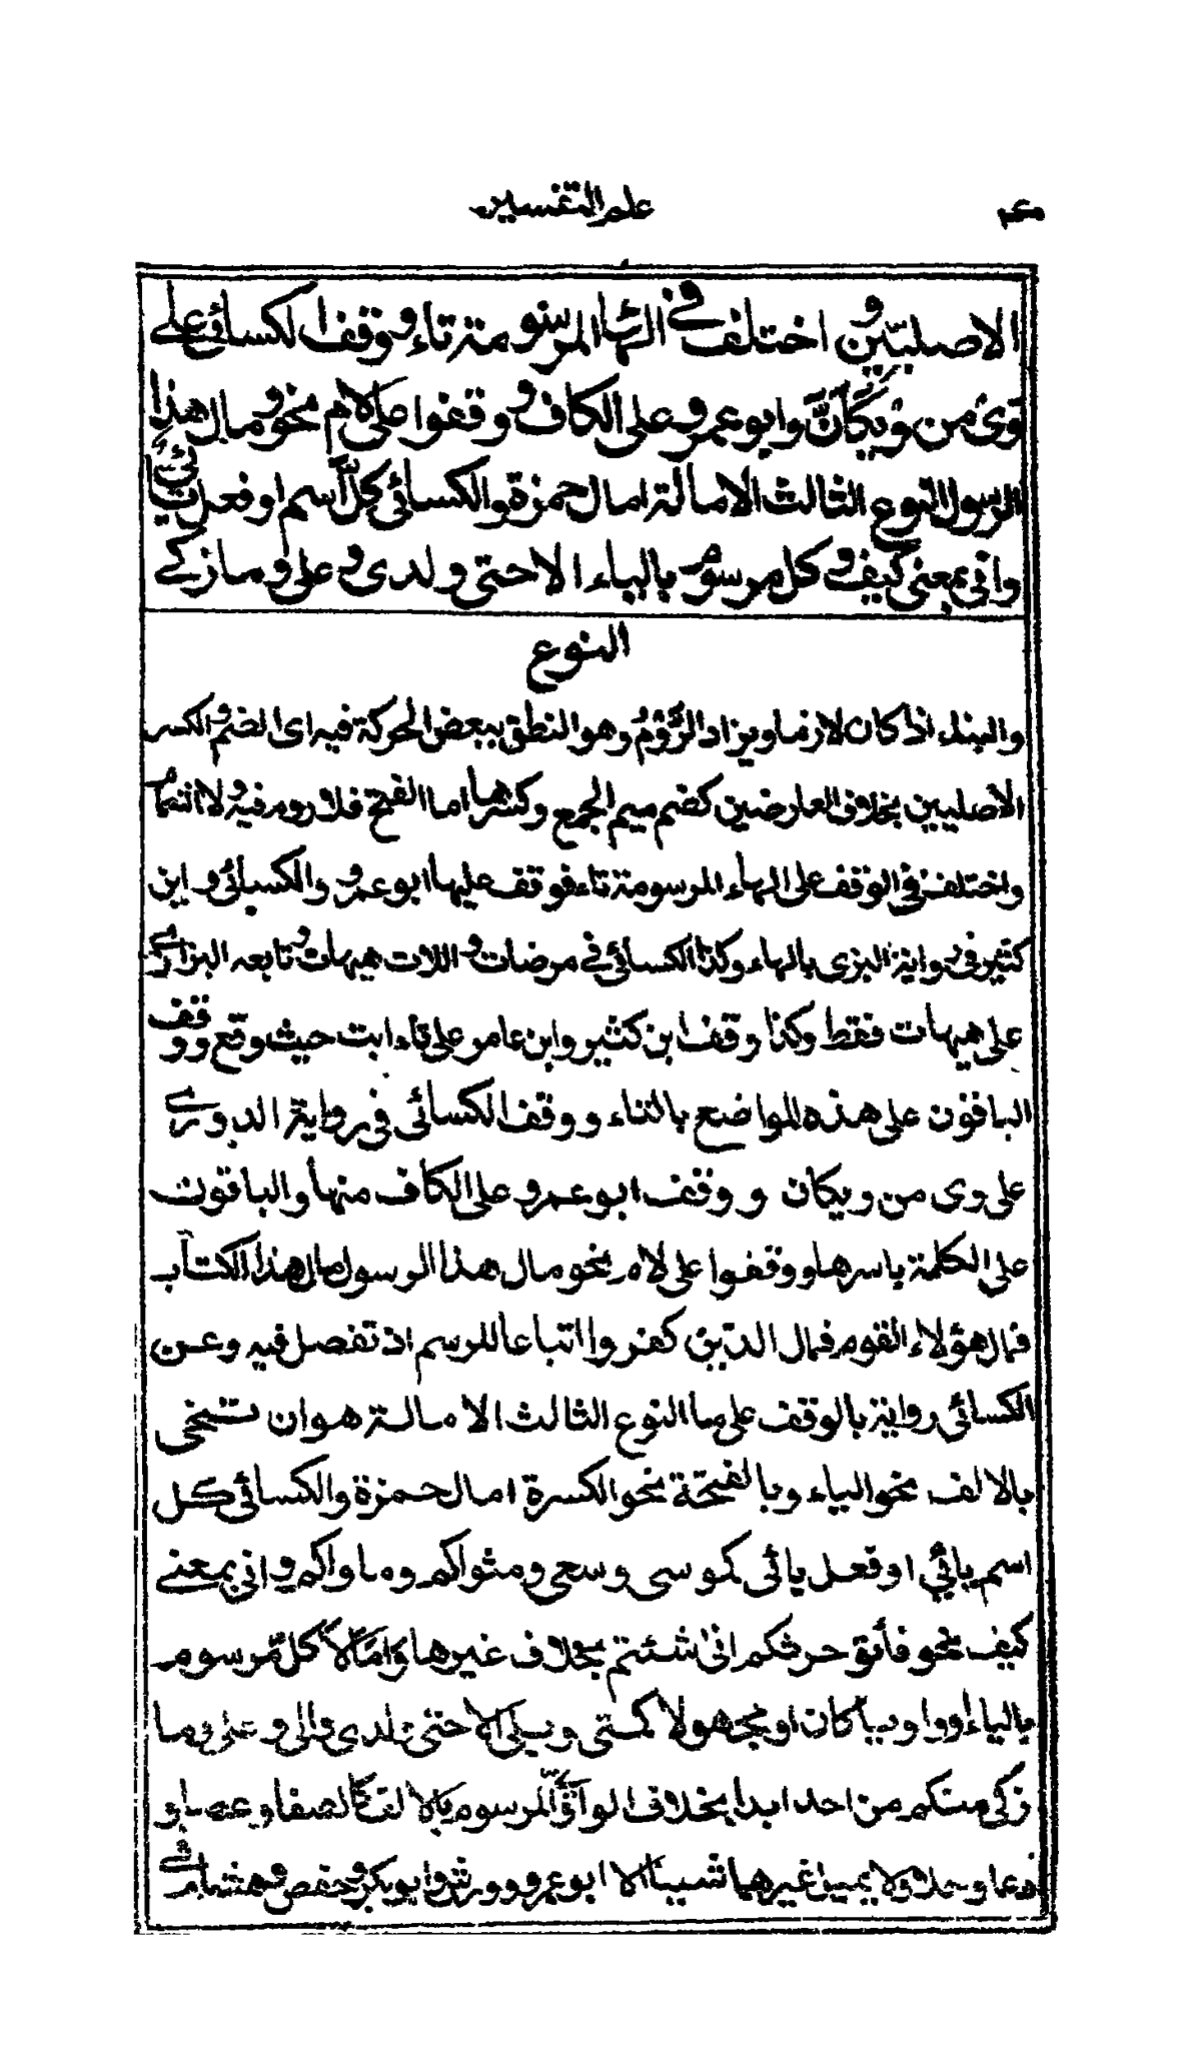 علم التفسير
الاصليين واختلف في الهاء المرسومة تاء ووقف الكسائي على
وى من ويكأن وابو عمرو على الكاف ووقفوا على لام نحو ومال هذا
الرسول النوع الثالث الامالة امال حمزة والكسائي كل اسم او فعل يائي
وانى بمعنى كيف وكل مرسوم بالياء الا حتى ولدى وعلى وما زكى
النوع
والبناء اذا كان لازما ويزاد الروم وهو النطق ببعض الحركة فيه اى الضم والكسر
الاصليين بخلاف العارضين كضم ميم الجمع وكسرها اما الفتح فلا روم فيه ولا اشمام
واختلف في الوقف على الهاء المرسومة تاء فوقف عليها ابو عمرو والكسائي وابن
كثير في رواية البزى بالهاء وكذا الكسائي في مرضات واللات هيهات وتابعه البزى
على هيهات فقط وكذا وقف ابن كثير وابن عامر على تاء ابت حيث وقع ووقف
الباقون على هذه المواضع بالتاء ووقف الكسائي في رواية الدورى
على وى من ويكان ووقف ابو عمرو على الكاف منها والباقون
على الكلمة باسرها ووقفوا على لام نحو مال هذا الرسول مال هذا الكتاب
فمال هؤلاء القوم فمال الذين كفروا اتباعا للرسم اذ تفصل فيه وعن
الكسائي رواية بالوقف على ما النوع الثالث الامالة هو ان تنحى
بالالف نحو الياء وبالفتحة نحو الكسرة امال حمزة والكسائي كل
اسم يائي او فعل يائي كموسى وسعى ومثواكم وماواكم وانى بمعنى
كيف نحو فأتو حرثكم انى شئتم بخلاف غيرها وامالا كل مرسوم
بالياء واويا كان او مجهولا كمتى وبلى الا حتى ولدى والى وعلى وما
زكى منكم من احد ابدا بخلاف الواوي المرسوم بالالف كالصفا وعصا و
دعا وخلا ولا يميل غيرهما شيئا الا ابو عمرو وورش وابو بكر وحفص وهشام في